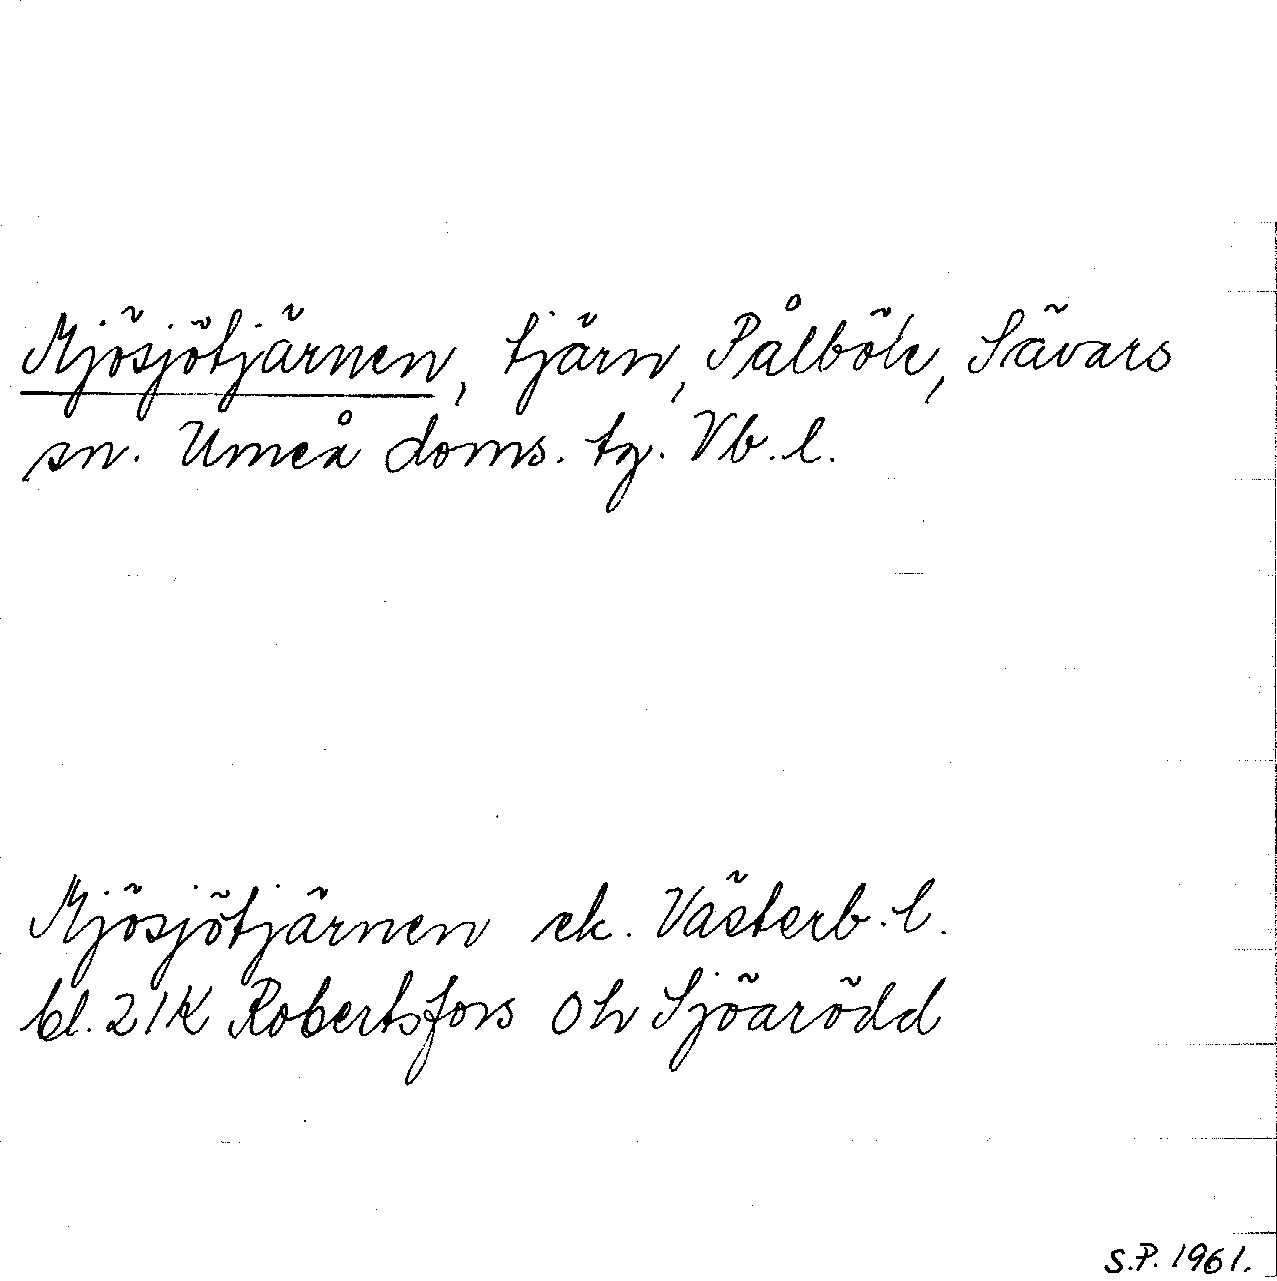 Mjösjötjärnen, tjärn, Pålböle, Sävars
sn. Umeå doms. tg. Vb. l.
Mjösjötjärnen ek. Västerb. l.
bl. 21K Robertsfors OH Sjöarödd
S.P. 1961.